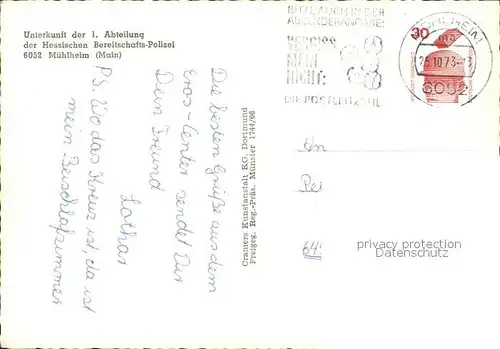 Unterkunft der 1. Abteilung
der Hessischen Bereitschafts-Polizei
6052 Mühlheim (Main)
Die besten Grüße aus dem
Eros-Center sendet Dir
Dein Freund
Lothar
P.S. Wo das Kreuz ist, da ist
mein Beischlafzimmer
Cramers Kunstanstalt KG. Dortmund
Freigeg. Reg.-Präs. Münster 1744/66
BITTE AUCH IN DER
ABSENDERANGABE:
VERGISS
MEIN
NICHT:
DIE POSTLEITZAHL
MÜHLHEIM
25.10.73-13
6052
30
An
64
privacy protection
Datenschutz